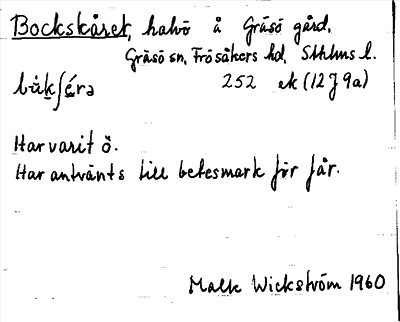 Bockskäret, halvö å Gräsö gård,
Gräsö sn, Frösåkers hd, Sthlms l.
252 ek (12 J 9a)
Har varit ö.
Har använts till betesmark för får.
Malte Wickström 1960